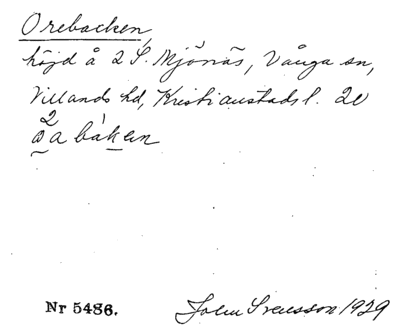 Orebacken,
höjd å 2 S. Mjönäs, Vånga sn,
Villands hd, Kristianstads l. 20
2
a bàken
Nr 5486. John Svensson 1929